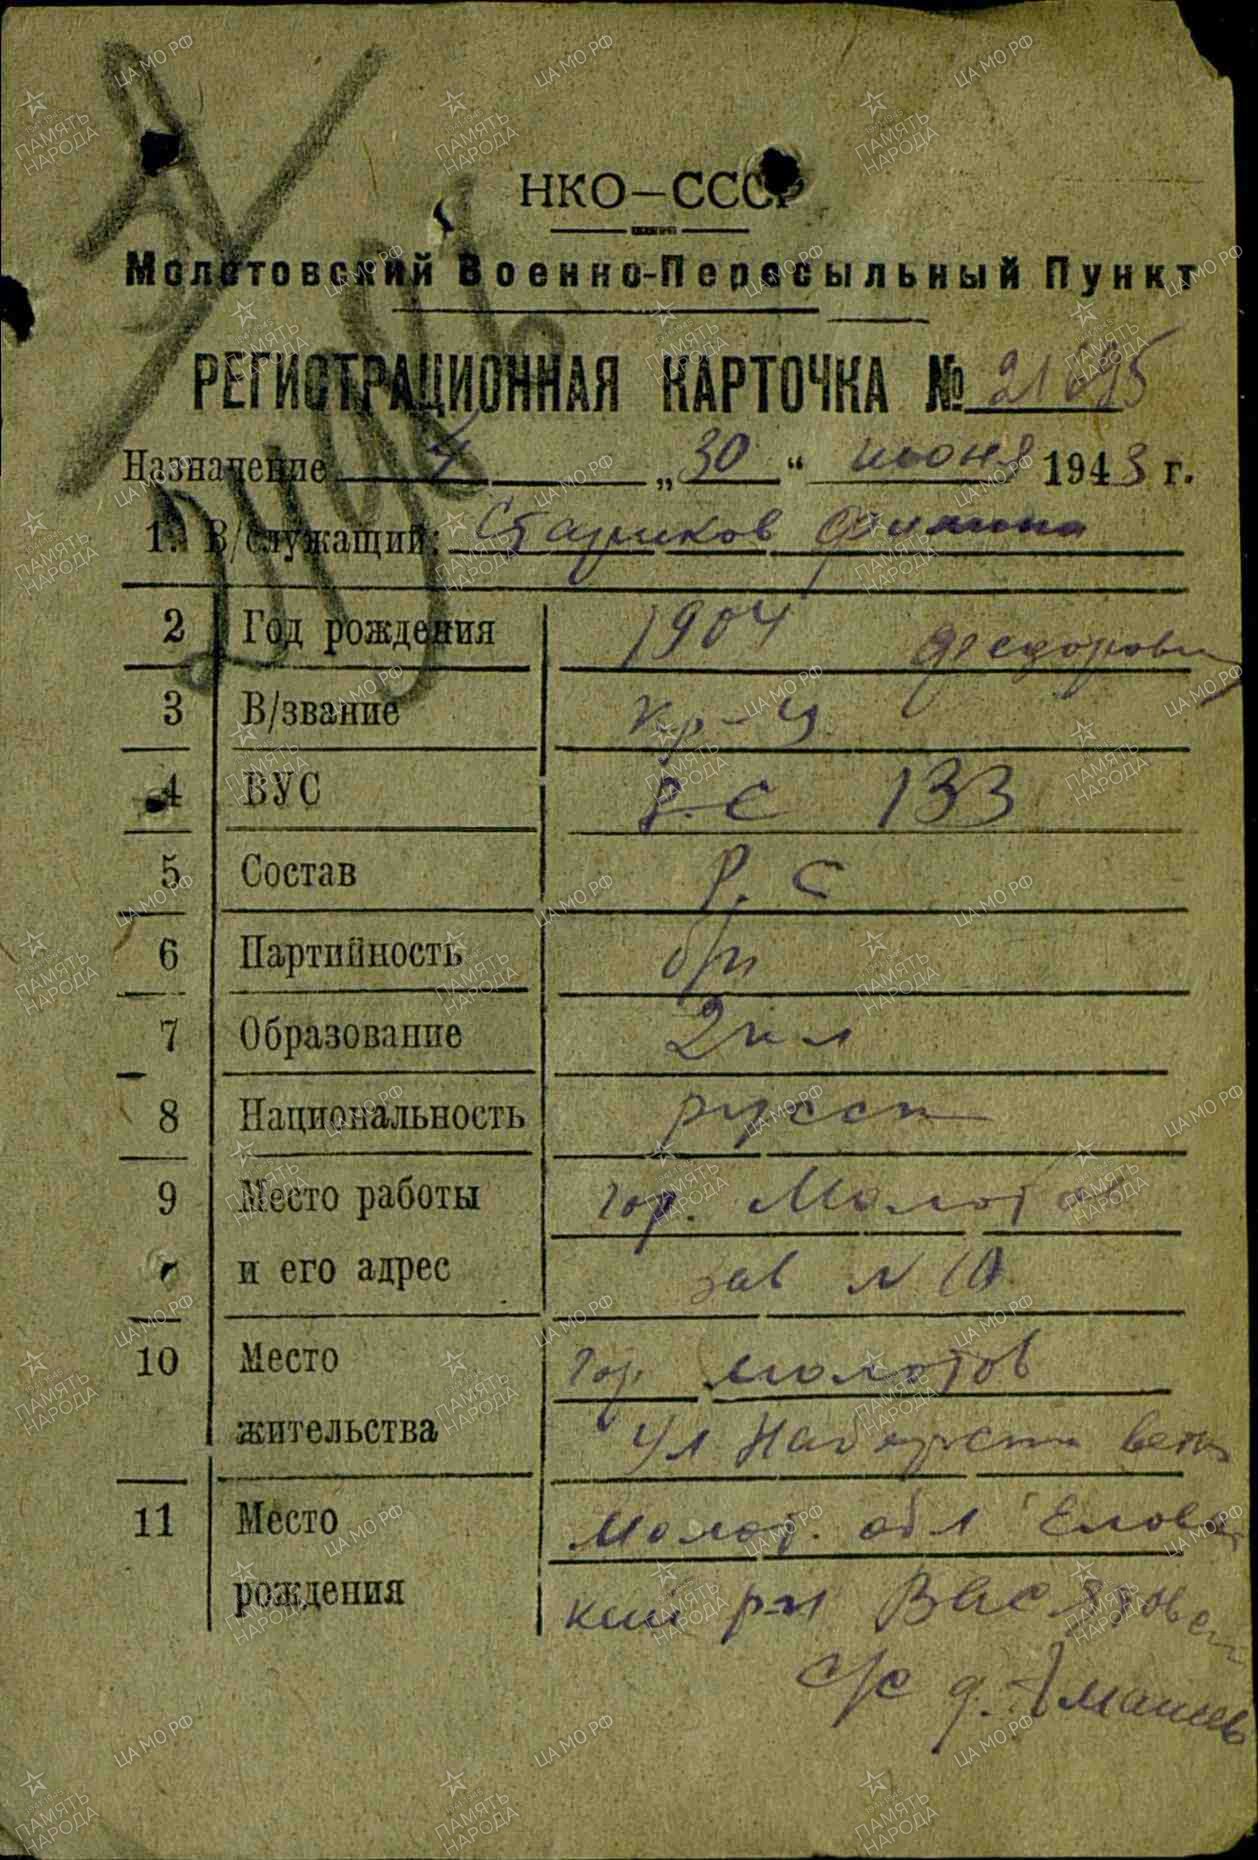 НКО–СССР
Молотовский Военно-Пересыльный Пункт
РЕГИСТРАЦИОННАЯ КАРТОЧКА №
Назначение „30“ июня 1943 г.
1. В/служащий: Стариков
2 Год рождения 1904 Федорович
3 В/звание кр-ц
4 ВУС р.с 133
5 Состав Р. С
6 Партийность б/п
7 Образование 2 кл
8 Национальность русск
9 Место работы гор. Молотов
и его адрес зав № 10
10 Место гор. Молотов
жительства ул
11 Место Молот. обл Еловс
рождения кий р-н
с/с д.
ЦА МО РФ
ПАМЯТЬ НАРОДА